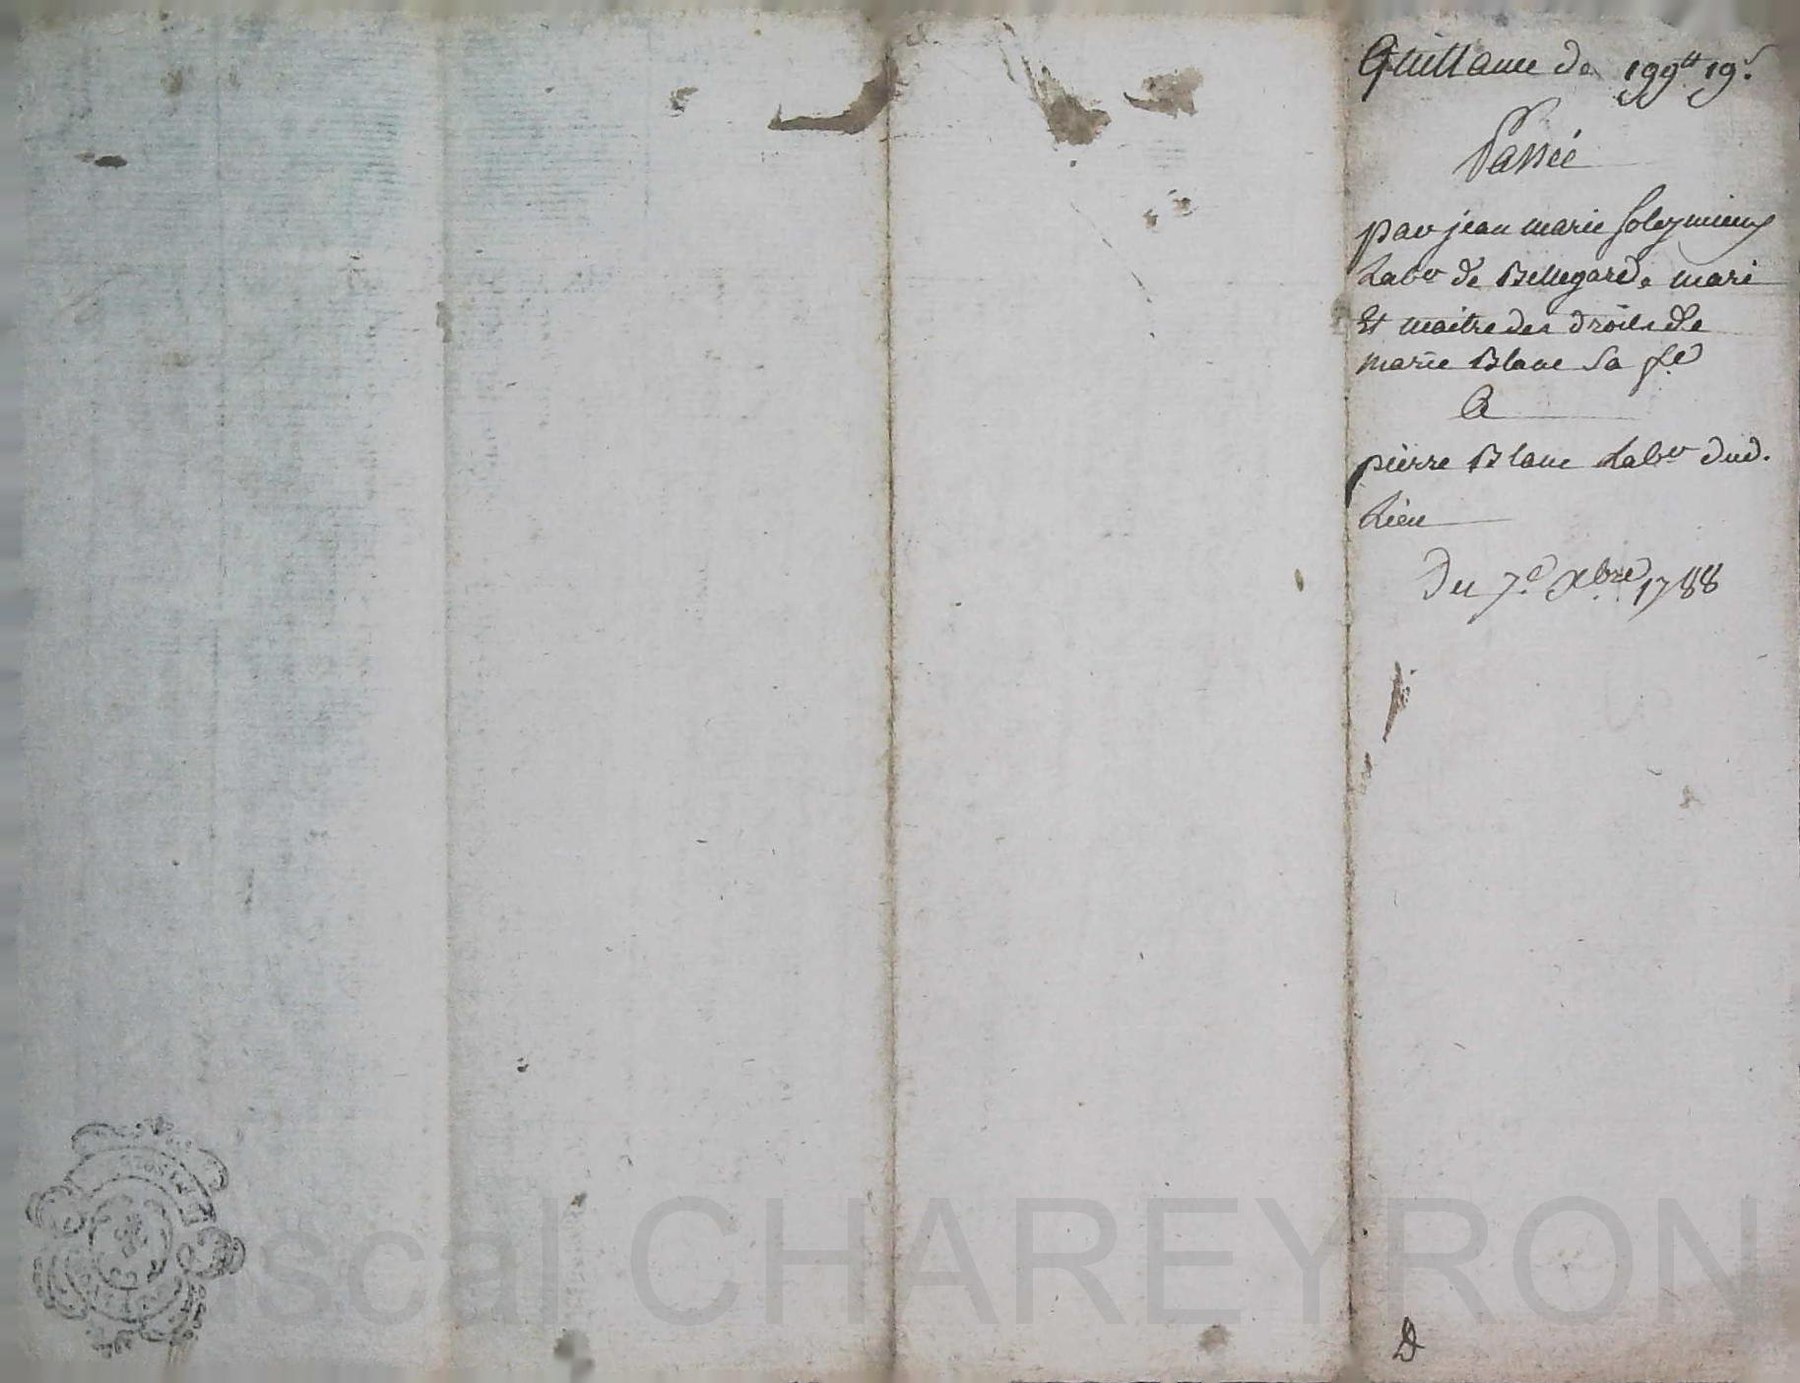 Quittance de 199tt 19s
Passée
par jean marie Soleymieux
Labr de Bellegarde mari
Et maitre des droits de
marie Blanc Sa fe
A
pierre Blanc Labr dud.
Lieu
Du 7e Xbre 1788
ascal CHAREYRON